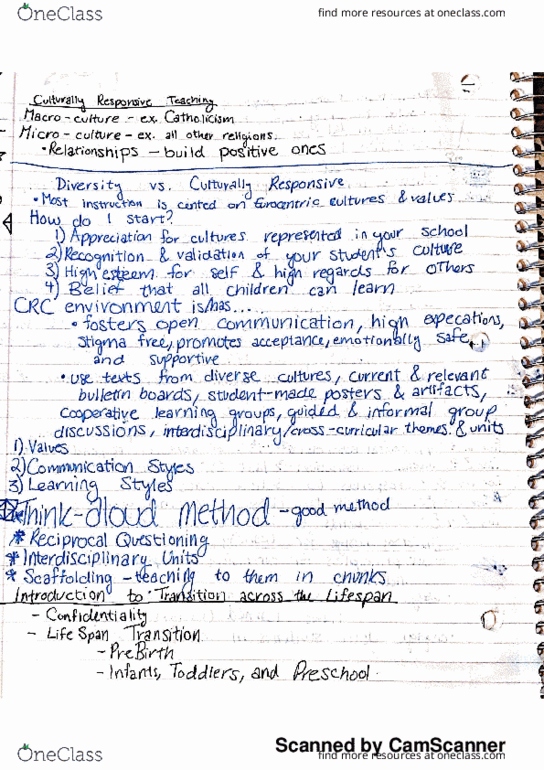 OneClass
find more resources at oneclass.com
Culturally Responsive Teaching
Macro-culture - ex. Catholicism
Micro-culture - ex. all other religions.
• Relationships - build positive ones
Diversity vs. Culturally Responsive
• Most instruction is cented on Eurocentric cultures & values
How do I start?
1) Appreciation for cultures represented in your school
2) Recognition & validation of your student's culture
3) High esteem for self & high regards for others
4) Belief that all children can learn
CRC environment is/has...
• fosters open communication, high expecations,
stigma free, promotes acceptance, emotionally safe,
and supportive
• use texts from diverse cultures, current & relevant
bulletin boards, student-made posters & artifacts,
cooperative learning groups, guided & informal group
discussions, interdisciplinary/cross-curricular themes & units
1) Values
2) Communication Styles
3) Learning Styles
Think-aloud method - good method
* Reciprocal Questioning
* Interdisciplinary Units
* Scaffolding - teaching to them in chunks
Introduction to Transition across the Lifespan
- Confidentiality
- Life Span Transition
- PreBirth
- Infants, Toddlers, and Preschool
Scanned by CamScanner
OneClass
find more resources at oneclass.com